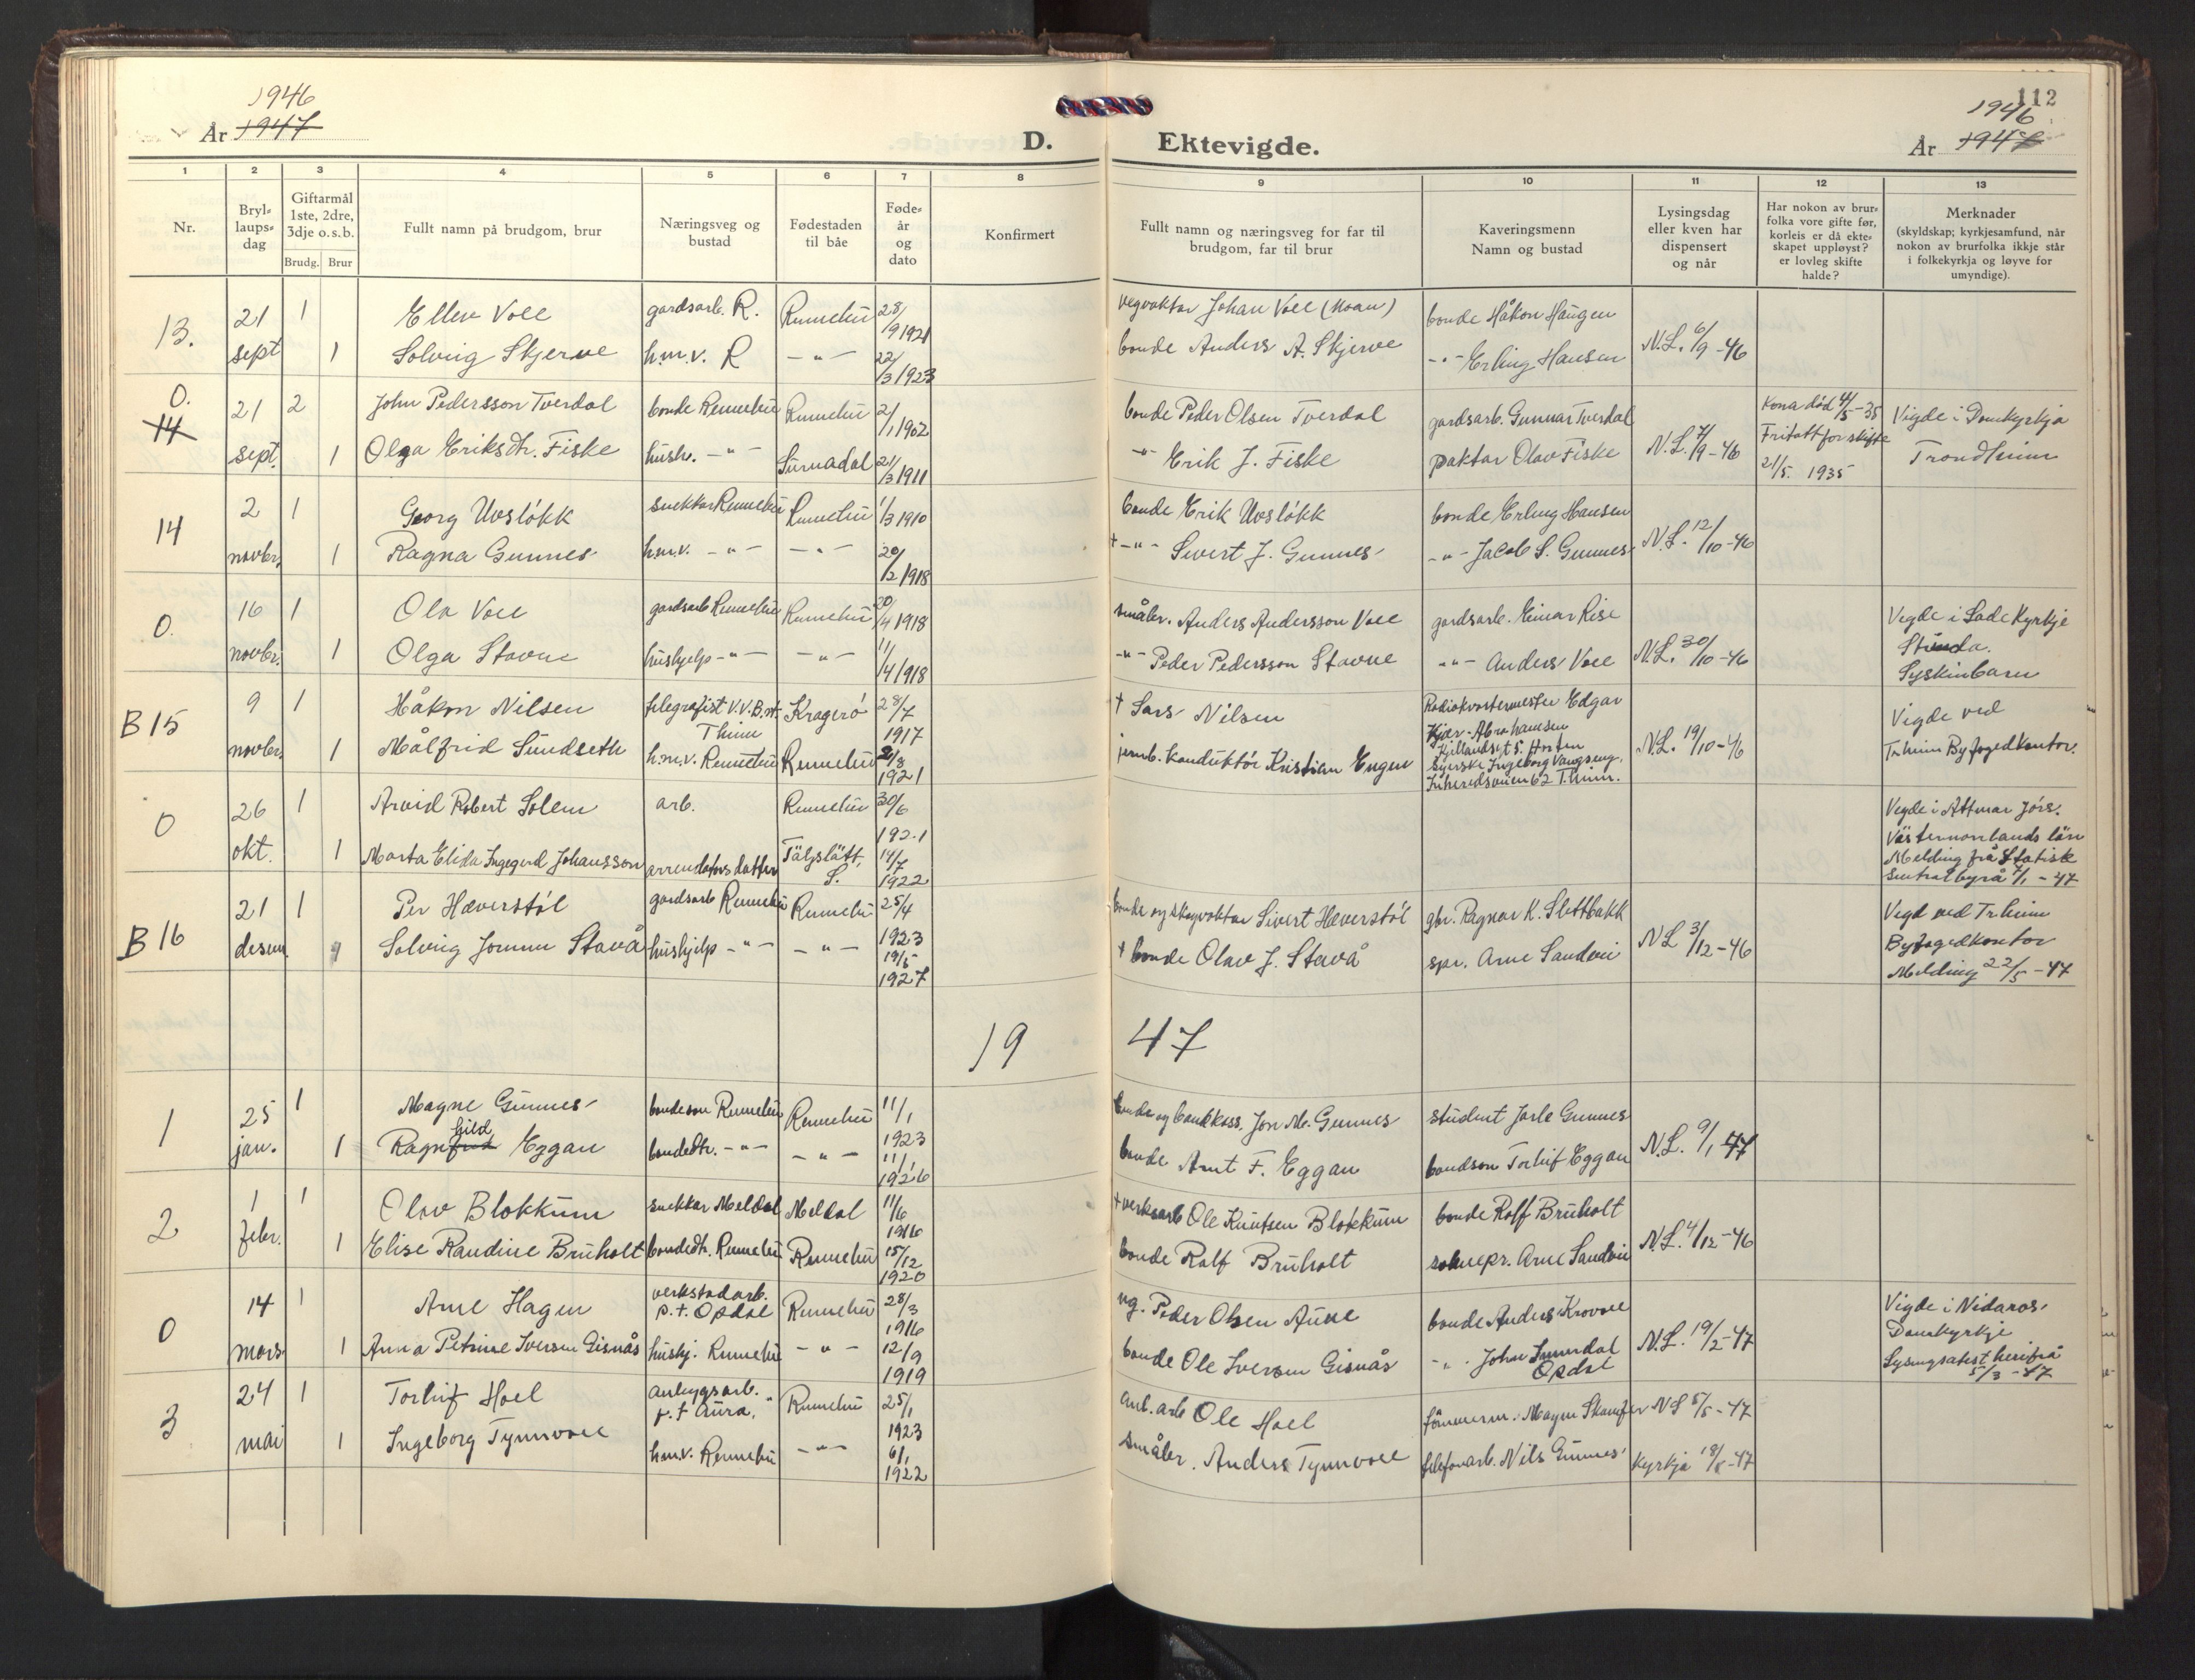 112
1946
År 1947
D. Ektevigde.
1946
År 1947
1 2 3 4 5 6 7 8 9 10 11 12 13
Nr.
Bryl-
laups-
dag
Giftarmål
1ste, 2dre,
3dje o.s.b.
Brudg. Brur
Fullt namn på brudgom, brur
Næringsveg og
bustad
Fødestaden
til båe
Føde-
år
og
dato
Konfirmert
Fullt namn og næringsveg for far til
brudgom, far til brur
Kaveringsmenn
Namn og bustad
Lysingsdag
eller kven har
dispensert
og når
Har nokon av brur-
folka vore gifte før,
korleis er då ekte-
skapet uppløyst?
er lovleg skifte
halde?
Merknader
(skyldskap; kyrkjesamfund, når
nokon av brurfolka ikkje står
i folkekyrkja og løyve for
umyndige).
13. 21 sept 1 Ellev Voll gardsarb. R. Rennebu 28/9 1921 vegvaktar Johan Voll (Moan) bonde Håkon Haugen N.L. 6/9-46
1 Solveig Skjerve h.m.v. R -"- 22/3 1923 bonde Anders A. Skjerve -"- Erling Hansen
0. 14 21 sept. 2 John Pedersson Tverdal bonde Rennebu Rennebu 2/1 1902 bonde Peder Olsen Tverdal gardsarb. Gunnar Tverdal N.L. 7/9-46 Kona død 4/5-35 Vigde i Domkyrkja
1 Olga Eriksdtr. Fiske hush. -"- Surnadal 21/3 1911 -"- Erik J. Fiske paktar Olav Fiske Fritatt for skifte 21/5. 1935 Trondheim
14 2 novbr. 1 Georg Uvsløkk snekkar Rennebu Rennebu 1/3 1910 bonde Erik Uvsløkk bonde Erling Hansen N.L. 12/10-46
1 Ragna Gunnes h.m.v. -"- -"- 20/2 1918 +-"- Sivert J. Gunnes -"- Jacob S. Gunnes
0. 16 novbr. 1 Ola Voll gardsarb Rennebu Rennebu 20/4 1918 småbr. Anders Andersson Voll gardsarb. Einar Rise N.L. 30/10-46 Vigde i Lade Kyrkje
1 Olga Stavne hushjelp -"- -"- 11/4 1918 -"- Peder Pedersson Stavne -"- Anders Voll Strinda.
Syskinbarn
B 15 9 novbr. 1 Håkon Nilsen telegrafist V.V.B.st. Thim Kragerö 28/7 1917 + Lars Nilsen Radiokvartermester Edgar
Kjær-Abrahamsen N.L. 19/10-46 Vigde ved
1 Målfrid Sundseth h.m.v. Rennebu Rennebu 1921 jernb. konduktör Kristian Engen Ingeborg Vangseng, Trheim Byfogedkontor.
0 26 okt. 1 Arvid Robert Solem arb. Rennebu 30/6 1921 Vigde i Attmar förs.
1 Marta Elida Ingegerd Johansson arrendatorsdatter S. 14/7 1922 Västernorrlands län
Melding frå Statisk
sentralbyrå 7/1-47
B 16 21 desem. 1 Per Hæverstøl gardsarb Rennebu Rennebu 25/4 1923 bonde og skogvaktar Sivert Hæverstøl gbr. Ragnar K. Slettbakk NL 3/12-46 Vigd ved Trheim
1 Solveig Jorunn Stavå hushjelp -"- -"- 19/5 1927 + bonde Olav J. Stavå spr. Arne Sandvei Byfogedkontor
Melding 22/5-47
19 47
1 25 jan. 1 Magne Gunnes bondeson Rennebu Rennebu 11/1 1923 bonde og bankkass. Jon M. Gunnes student Jarle Gunnes N.L. 9/1 47
1 Ragnfrid hild Eggan bondedtr. -"- -"- 11/1 1926 bonde Arnt F. Eggan bondson Torleif Eggan
2 1 febr. 1 Olav Blokkum snekkar Meldal Meldal 11/6 1916 + verksarb Ole Knutsen Blokkum bonde Rolf Bruholt N.L. 4/12-46
1 Elise Randine Bruholt bondedtr. Rennebu Rennebu 15/12 1920 bonde Rolf Bruholt soknepr. Arne Sandvei
0 14 mars 1 Arne Hagen verkstadarb. p.t. Opdal Rennebu 28/3 1916 ug. Peder Olsen Aune bonde Anders Krovoll N.L. 19/2-47 Vigde i Nidaros
1 Anna Petrine Iversen Gisnås hushj. Rennebu -"- 12/9 1919 bonde Ole Iversen Gisnås -"- John Opdal Domkyrkje
Lysingsatest herifrå
5/3-47
3 24 mai 1 Torleif Hoel anleggsarb. p.t Aura, Rennebu 25/1 1923 anl. arb Ole Hoel tömmerm. Magne Skamfer NL 5/5-47
1 Ingeborg Tynnvoll h.m.v. Rennebu -"- 6/1 1922 småbr. Anders Tynnvoll telefonarb. Nils Gunnes Kyrkja 18/5-47